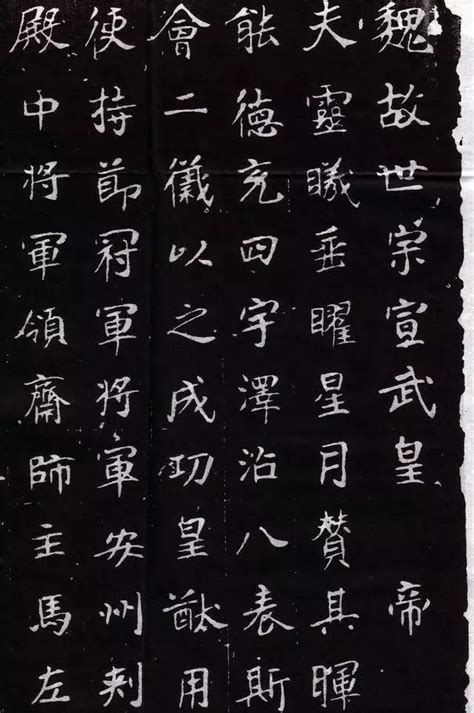 魏故世宗宣武皇 帝
夫靈曦垂曜星月贊其暉
能德充四宇澤沾八表斯
會二儀以之成功皇猷用
使持節冠軍將軍安州刾
殿中将軍領齋師主馬左